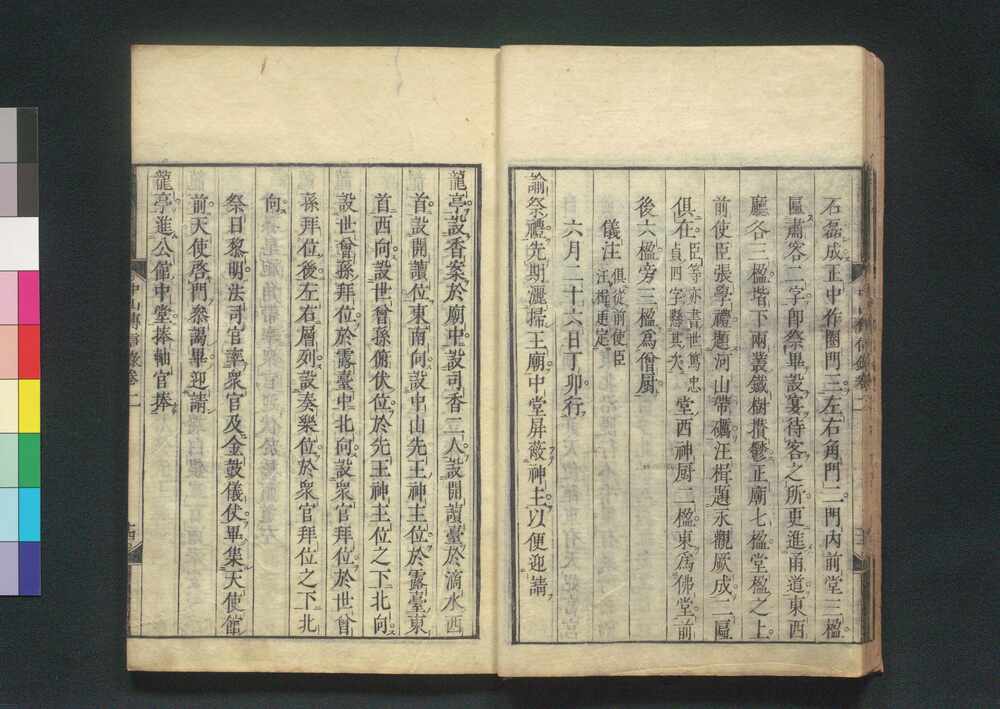 石磊成正中作圈門三左右角門二門內前堂三楹
匾肅客二字卽祭畢設宴待客之所更進甬道東西
廳各三楹堦下兩叢鐵樹攢鬱正廟七楹堂楹之上
前使臣張學禮題河山帶礪汪楫題永觀厥成二匾
俱在臣等亦書世篤忠貞四字懸其次堂西神厨二楹東爲佛堂前
後六楹旁三楹爲僧厨
儀注俱從前使臣汪楫更定
六月二十六日丁卯行
諭祭禮先期灑掃王廟中堂屏蔽神主以便迎請
龍亭設香案於廟中設司香二人設開讀臺於滴水西
首設開讀位東南向設中山先王神主位於露臺東
首西向設世曾孫俯伏位於先王神主位之下北向
設世曾孫拜位於露臺中北向設衆官拜位於世曾
孫拜位後左右層列設奏樂位於衆官拜位之下北
向
祭日黎明法司官率衆官及金鼓儀仗畢集天使館
前天使啓門叅謁畢迎請
龍亭進公館中堂捧軸官捧
中山傳信錄卷二
十四